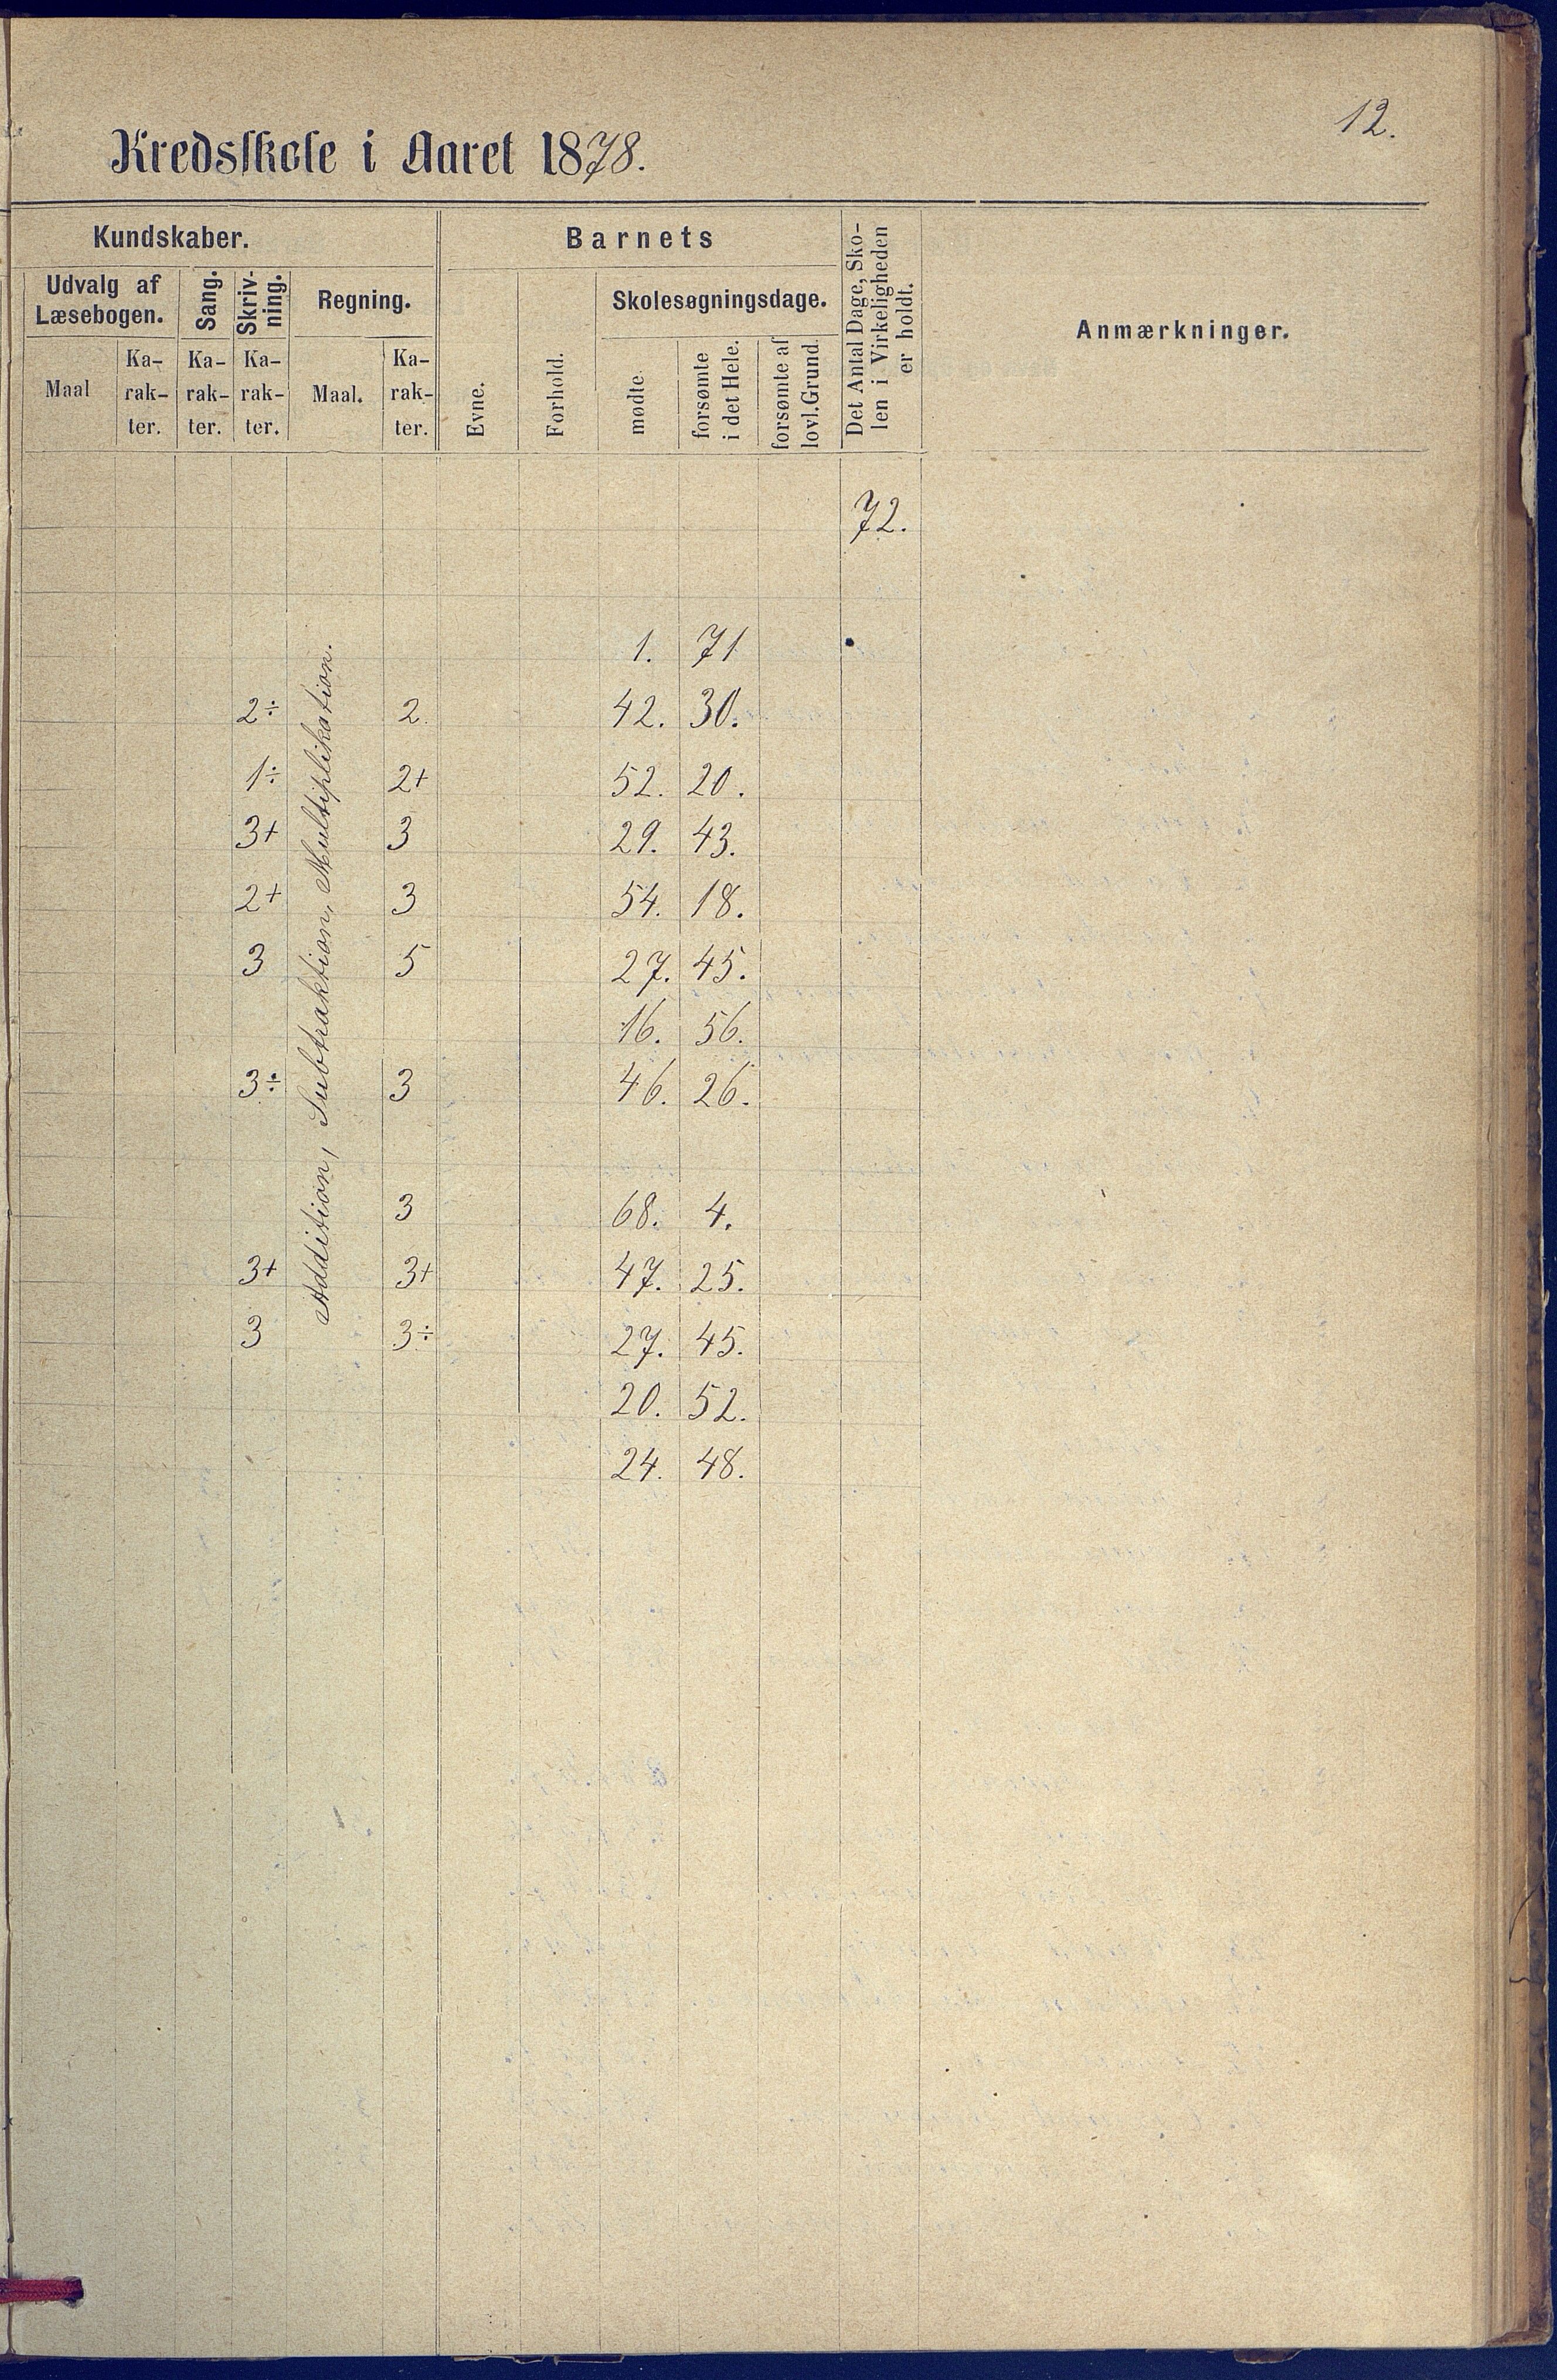 12.
Kredsskole i Aaret 1878.
Kundskaber.
Barnets
Det Antal Dage, Sko-
len i Virkeligheden
er holdt.
Anmærkninger.
Udvalg af
Læsebogen.
Sang.
Skriv-
ning.
Regning.
Skolesøgningsdage.
Maal
Ka-
rak-
ter.
Ka-
rak-
ter.
Ka-
rak-
ter.
Maal.
Ka-
rak-
ter.
Evne.
Forhold.
mødte.
forsømte
i det Hele.
forsømte af
lovl. Grund.
72.
Addition, Subtraktion, Multiplikation.
1. 71
2÷ 2. 42. 30.
1÷ 2+ 52. 20.
3+ 3 29. 43.
2+ 3 54. 18.
3 5 27. 45.
16. 56.
3÷ 3 46. 26.
3 68. 4.
3+ 3+ 47. 25.
3 3÷ 27. 45.
20. 52.
24. 48.